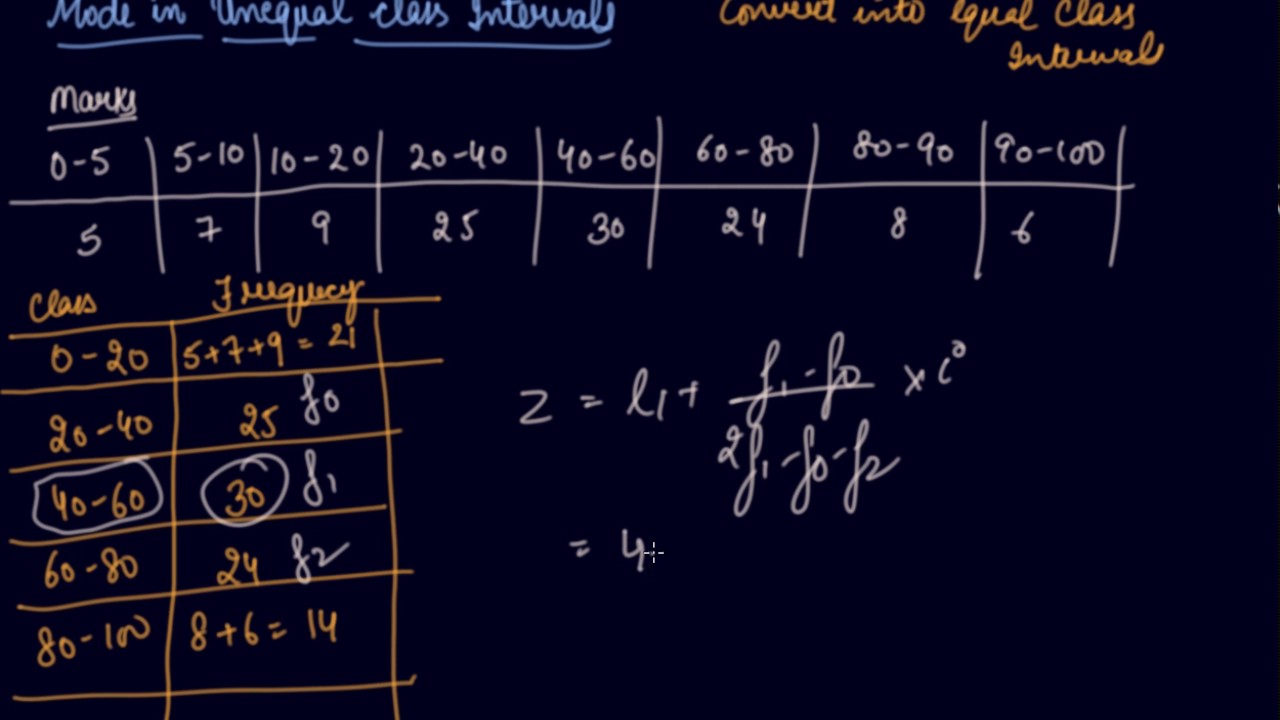 Mode in Unequal class Intervals
Convert into equal class
Interval
Marks
0-5 5-10 10-20 20-40 40-60 60-80 80-90 90-100
5 7 9 25 30 24 8 6
Class Frequecy
0-20 5+7+9=21
20-40 25 f0
40-60 30 f1
60-80 24 f2
80-100 8+6=14
Z = l1 + f1-f0 × i
2f1-f0-f2
= 4